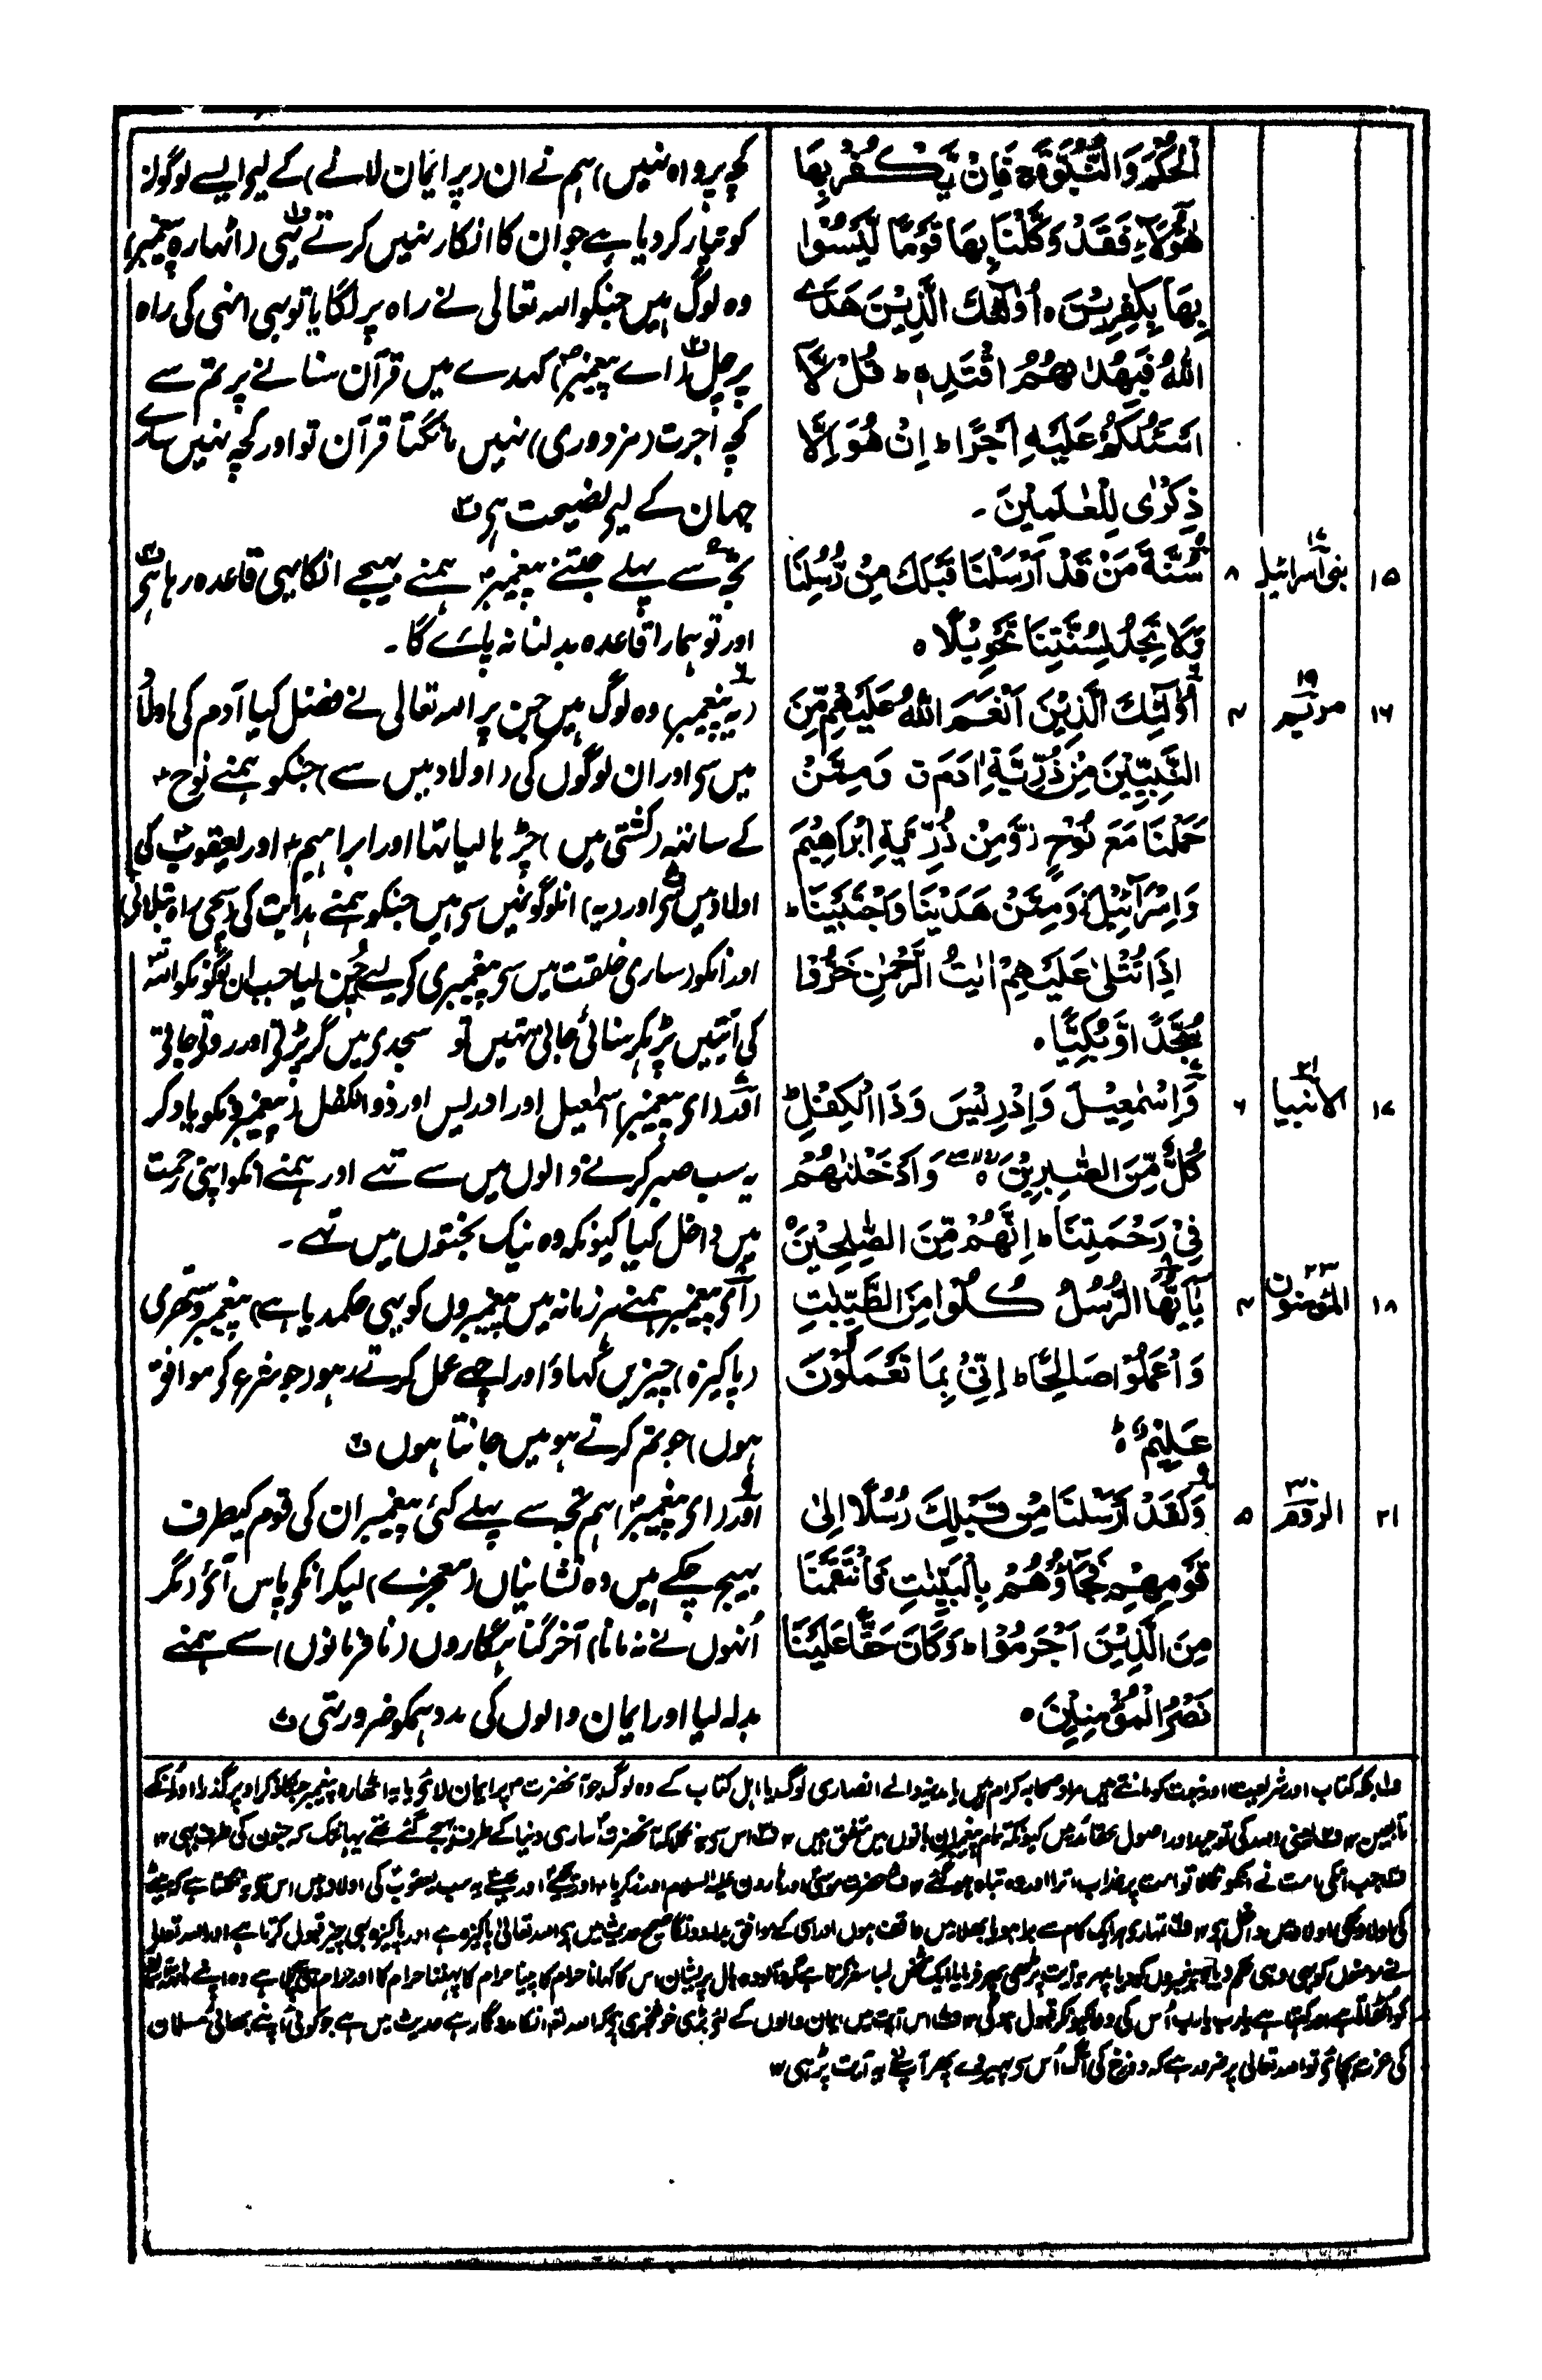 الْحُكْمَ وَالنُّبُوَّةَ فَاِنْ يَّكْفُرْ بِهَا
هٰٓؤُلَآءِ فَقَدْ وَكَّلْنَا بِهَا قَوْمًا لَّيْسُوْا
بِهَا بِكٰفِرِيْنَ ہ اُولٰٓئِكَ الَّذِيْنَ هَدَى
اللّٰهُ فَبِهُدٰىهُمُ اقْتَدِهْ ط قُلْ لَّآ
اَسْـَٔلُكُمْ عَلَيْهِ اَجْرًا ط اِنْ هُوَ اِلَّا
ذِكْرٰى لِلْعٰلَمِيْنَ ۔
کچھ پرواہ نہیں) ہم نے ان (پر ایمان لانے) کے لیے ایسے لوگوں
کو تیار کر دیا ہے جو ان کا انکار نہیں کرتے یہی (اٹہارہ پیغمبر)
وہ لوگ ہیں جنکو اللہ تعالی نے راہ پر لگایا تو بہی انہی کی راہ
پر چل (اے پیغمبرؐ) کہدے میں قرآن سنانے پر تم سے
کچھ اُجرت (مزدوری) نہیں مانگتا قرآن تو اور کچھ نہیں سارے
جہان کے لیے نصیحت ہے
۱۵ بنی اسرائیل ۱۷ ۸
سُنَّةَ مَنْ قَدْ اَرْسَلْنَا قَبْلَكَ مِنْ رُّسُلِنَا
وَلَا تَجِدُ لِسُنَّتِنَا تَحْوِيْلًا ہ
تجھ سے پہلے جتنے پیغمبر ہمنے بھیجے انکا یہی قاعدہ رہا ہے
اور تو ہمارا قاعدہ بدلنا نہ پائے گا ۔
۱۶ مریم ۱۹ ۴
اُولٰٓئِكَ الَّذِيْنَ اَنْعَمَ اللّٰهُ عَلَيْهِمْ مِّنَ
النَّبِيّٖنَ مِنْ ذُرِّيَّةِ اٰدَمَ ق وَمِمَّنْ
حَمَلْنَا مَعَ نُوْحٍ ز وَّمِنْ ذُرِّيَّةِ اِبْرٰهِيْمَ
وَاِسْرَآءِيْلَ ز وَمِمَّنْ هَدَيْنَا وَاجْتَبَيْنَا ط
اِذَا تُتْلٰى عَلَيْهِمْ اٰيٰتُ الرَّحْمٰنِ خَرُّوْا
سُجَّدًا وَّبُكِيًّا ہ
(یہ پیغمبر) وہ لوگ ہیں جن پر اللہ تعالی نے فضل کیا آدم کی اولاد
میں سے اور ان لوگوں کی (اولاد میں سے) جنکو ہمنے نوح
کے ساتھ (کشتی میں) چڑہا لیا تہا اور ابراہیم اور یعقوب کی
اولاد میں سے اور (یہ) انلوگونمیں سے ہیں جنکو ہمنے ہدایت کی (سچی راہ بتلائی)
اور انکو (ساری خلقت میں سے پیغمبری کے لیے) چُن لیا جب ان لوگونکو اللہ
کی آیتیں پڑہکر سنائی جاتی تہیں تو سجدی میں گر پڑتے اور روتے جاتے
۱۷ الانبیا ۲۱ ۶
وَاِسْمٰعِيْلَ وَاِدْرِيْسَ وَذَا الْكِفْلِ ط
كُلٌّ مِّنَ الصّٰبِرِيْنَ ہ وَاَدْخَلْنٰهُمْ
فِيْ رَحْمَتِنَا ط اِنَّهُمْ مِّنَ الصّٰلِحِيْنَ ہ
اور (ای پیغمبر) اسمٰعیل اور ادریس اور ذوالکفل (پیغمبر) کو یاد کر
یہ سب صبر کرنے والوں میں سے تہے اور ہمنے انکو اپنی رحمت
میں داخل کیا کیونکہ وہ نیک بختوں میں تہے ۔
۱۸ المؤمنون ۲۳ ۴
يٰٓاَيُّهَا الرُّسُلُ كُلُوْا مِنَ الطَّيِّبٰتِ
وَاعْمَلُوْا صَالِحًا ط اِنِّيْ بِمَا تَعْمَلُوْنَ
عَلِيْمٌ ہ ط
(ای پیغمبر ہمنے ہر زمانہ میں پیغمبروں کو یہی حکم دیا ہے) پیغمبرو ستھری
(پاکیزہ) چیزیں کہاؤ اور اچھے عمل کرتے رہو (جو شرع کے موافق
ہوں) جو تم کرتے ہو میں جانتا ہوں
۲۱ الروم ۳۰ ۵
وَلَقَدْ اَرْسَلْنَا مِنْ قَبْلِكَ رُسُلًا اِلٰى
قَوْمِهِمْ فَجَآءُوْهُمْ بِالْبَيِّنٰتِ فَانْتَقَمْنَا
مِنَ الَّذِيْنَ اَجْرَمُوْا ط وَكَانَ حَقًّا عَلَيْنَا
نَصْرُ الْمُؤْمِنِيْنَ ہ
اور (ای پیغمبرؐ) ہم تجھ سے پہلے کئی پیغمبر ان کی قوم کیطرف
بھیج چکے ہیں وہ نشانیاں (معجزے) لیکر انکے پاس آئے (مگر
اُنہوں نے نہ مانا) آخر گناہگاروں (نافرمانوں) سے ہمنے
بدلہ لیا اور ایمان والوں کی مدد ہمکو ضرور تہی
بلکہ کتاب اور شریعت اور نبوت کو مانتے ہیں مراد صحابہ کرام ہیں یا مدینہ والے انصاری لوگ یا اہل کتاب کے وہ لوگ جو آنحضرت پر ایمان لائے یا یہ اٹھارہ پیغمبر جنکا ذکر اوپر گذرا اور اُنکے
تابعین ۱۲ یعنی اللہ کی توحید اور اصول عقائد میں کیونکہ تمام پیغمبر ان باتوں میں متفق ہیں ۱۲ اس سے یہ نکلا کہ آنحضرت ساری دنیا کے طرف بھیجے گئے تھے یہانتک کہ جنوں کی طرف بہی ۱۲
جب انکی امت نے انکو نکالا تو امت پر عذاب اترا اور وہ تباہ ہو گئے ۱۲ حضرت موسی اور ہارون علیہ السلام اور زکریا اور یحییٰ اور عیسی یہ سب یعقوب کی اولاد ہیں اس سے یہ نکلتا ہے کہ بیٹی
کی اولاد بہی اولاد میں داخل ہے ۱۲ تمہاری ہر ایک کام سے برا ہو یا بھلا میں واقف ہوں اور اسی کے موافق بدلہ دونگا صحیح حدیث میں ہے اللہ تعالیٰ پاکیزہ ہے اور پاکیزہ ہی چیز قبول کرتا ہے اور اللہ تعالی
نے مومنوں کو بہی وہی حکم دیا جو پیغمبروں کو دیا پہر یہ آیت پڑہی پہر فرمایا ایک شخص لمبا سفر کرتا ہے گرد آلودہ بال پریشان اس کا کہانا حرام کا پینا حرام کا پہننا حرام کا اور حرام
کو اٹھاتا ہے اور کہتا ہے یارب یارب اُس کی دعا کیونکر قبول ہوگی ۱۲ اس آیت میں ایمان والوں کے لئے بڑی خوشخبری ہے کہ اللہ انکا مددگار ہے حدیث میں ہے جو کوئی اپنے بھائی مسلمان
کی عزت بچائے تو اللہ تعالی پر ضرور ہے کہ دوزخ کی آگ اُس سے پہیرے پہر آپ نے یہ آیت پڑہی ۱۲